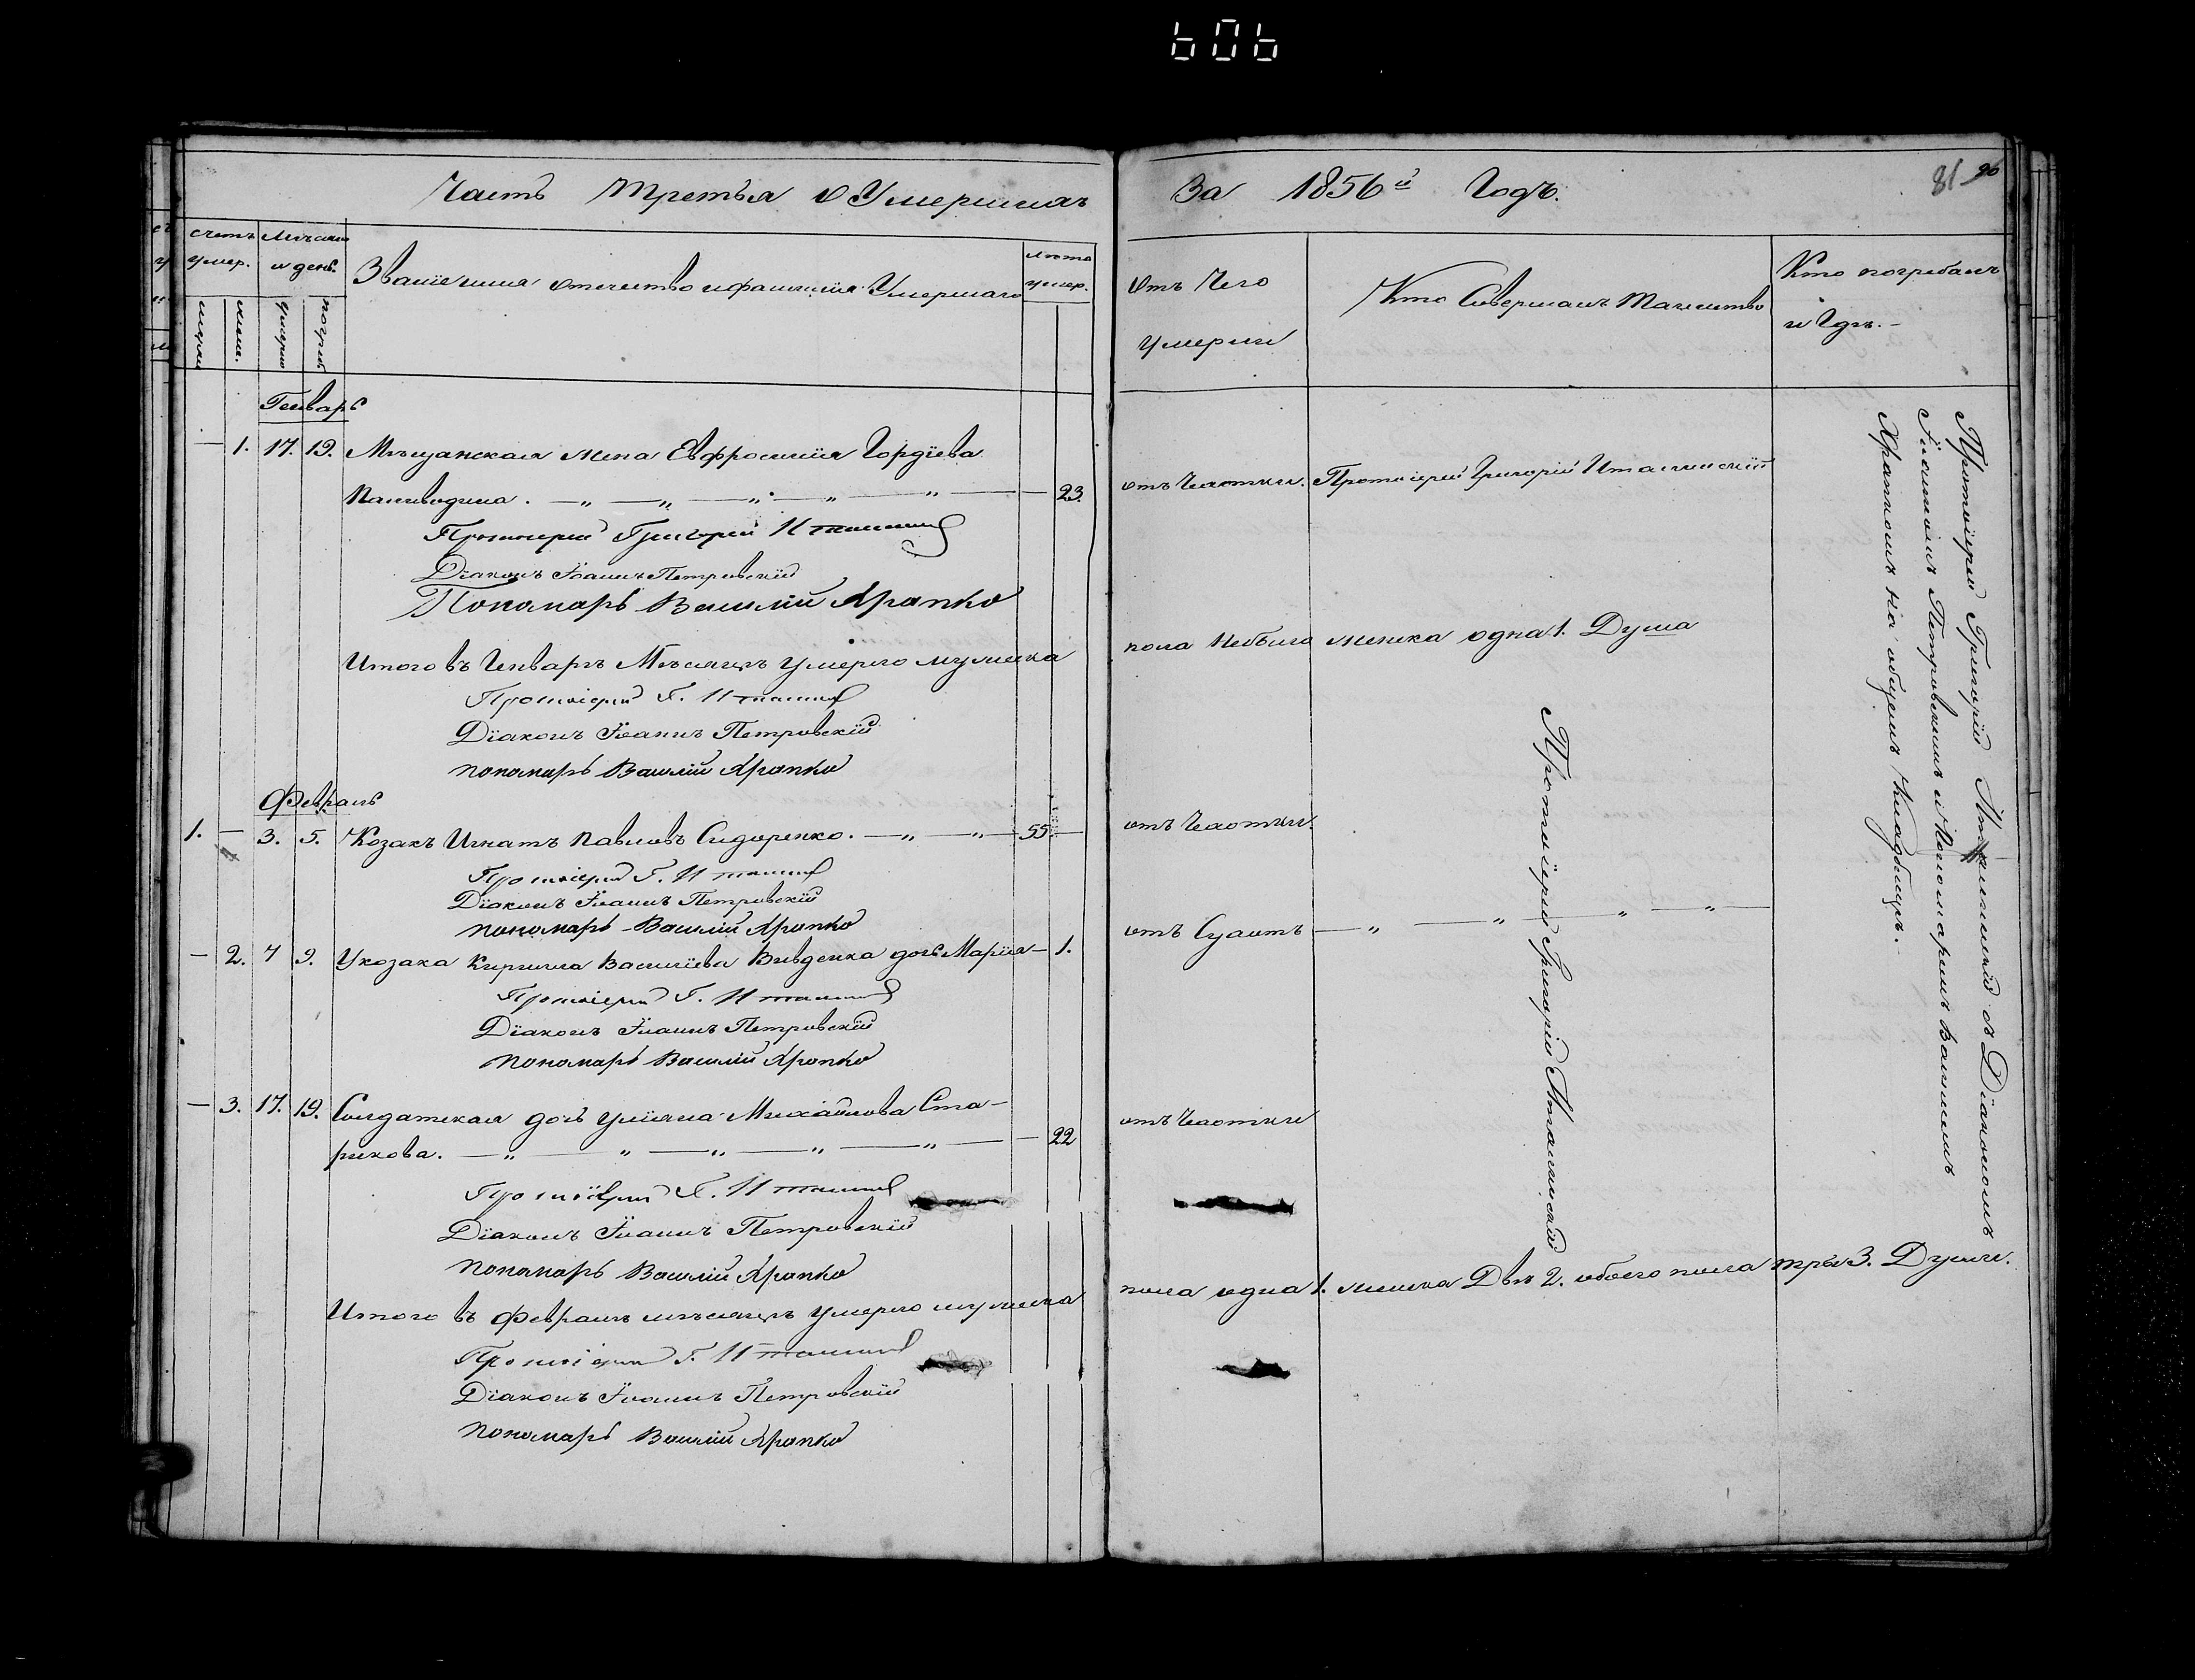 606
Часть Третья о Умершихъ
За 1856й Годъ.
81 96
счетъ умер.
Мѣсяцъ и день.
Званіе имя отечество и фамилія Умершаго
лѣта умер.
Отъ Чего умерли
Кто Совершалъ Таинство
Кто погребалъ и Гдѣ.
умерш
погреб
Генварь
1. 17. 19. Мѣщанская жена Евфросинія Гордіева
Паливодина. 23. отъ Чахотки. Протоіерей Григорій Италинскій
Протоіерей Григорій Италинскій
Діаконъ Іоаннъ Петровскій
Пономарь Василій Храпко
Итого въ Генварѣ Мѣсяцѣ умерло мужеска
пола Небыло женска одна 1. Душа
Протоіерей Г. Италинскій
Діаконъ Іоаннъ Петровскій
пономарь Василій Храпко
Февраль
1. — 3. 5. Козакъ Игнатъ Павловъ Сидоренко. 55. отъ Чахотки.
Протоіерей Г. Италинскій
Діаконъ Іоаннъ Петровскій
пономарь Василій Храпко
— 2. 7 9. У козака Кирилла Васильева Вивденка дочь Марія — 1. отъ Сухотъ
Протоіерей Г. Италинскій
Діаконъ Іоаннъ Петровскій
пономарь Василій Храпко
— 3. 17. 19. Солдатская дочь Уліяна Михайлова Ста-
рикова. 22 отъ Чахотки
Протоіерей Г. Италинскій
Діаконъ Іоаннъ Петровскій
пономарь Василій Храпко
Итого въ Февралѣ мѣсяцѣ умерло мужеска
пола одна 1. женска Двѣ 2. обоего пола три 3. Души.
Протоіерей Г. Италинскій
Діаконъ Іоаннъ Петровскій
пономарь Василій Храпко
Протоіерей Григорій Италинскій
Протоіерей Григорій Италинскій съ Діакономъ
Іоанномъ Петровскимъ и Пономаремъ Василіемъ
Храпкомъ на общемъ Кладбищѣ.